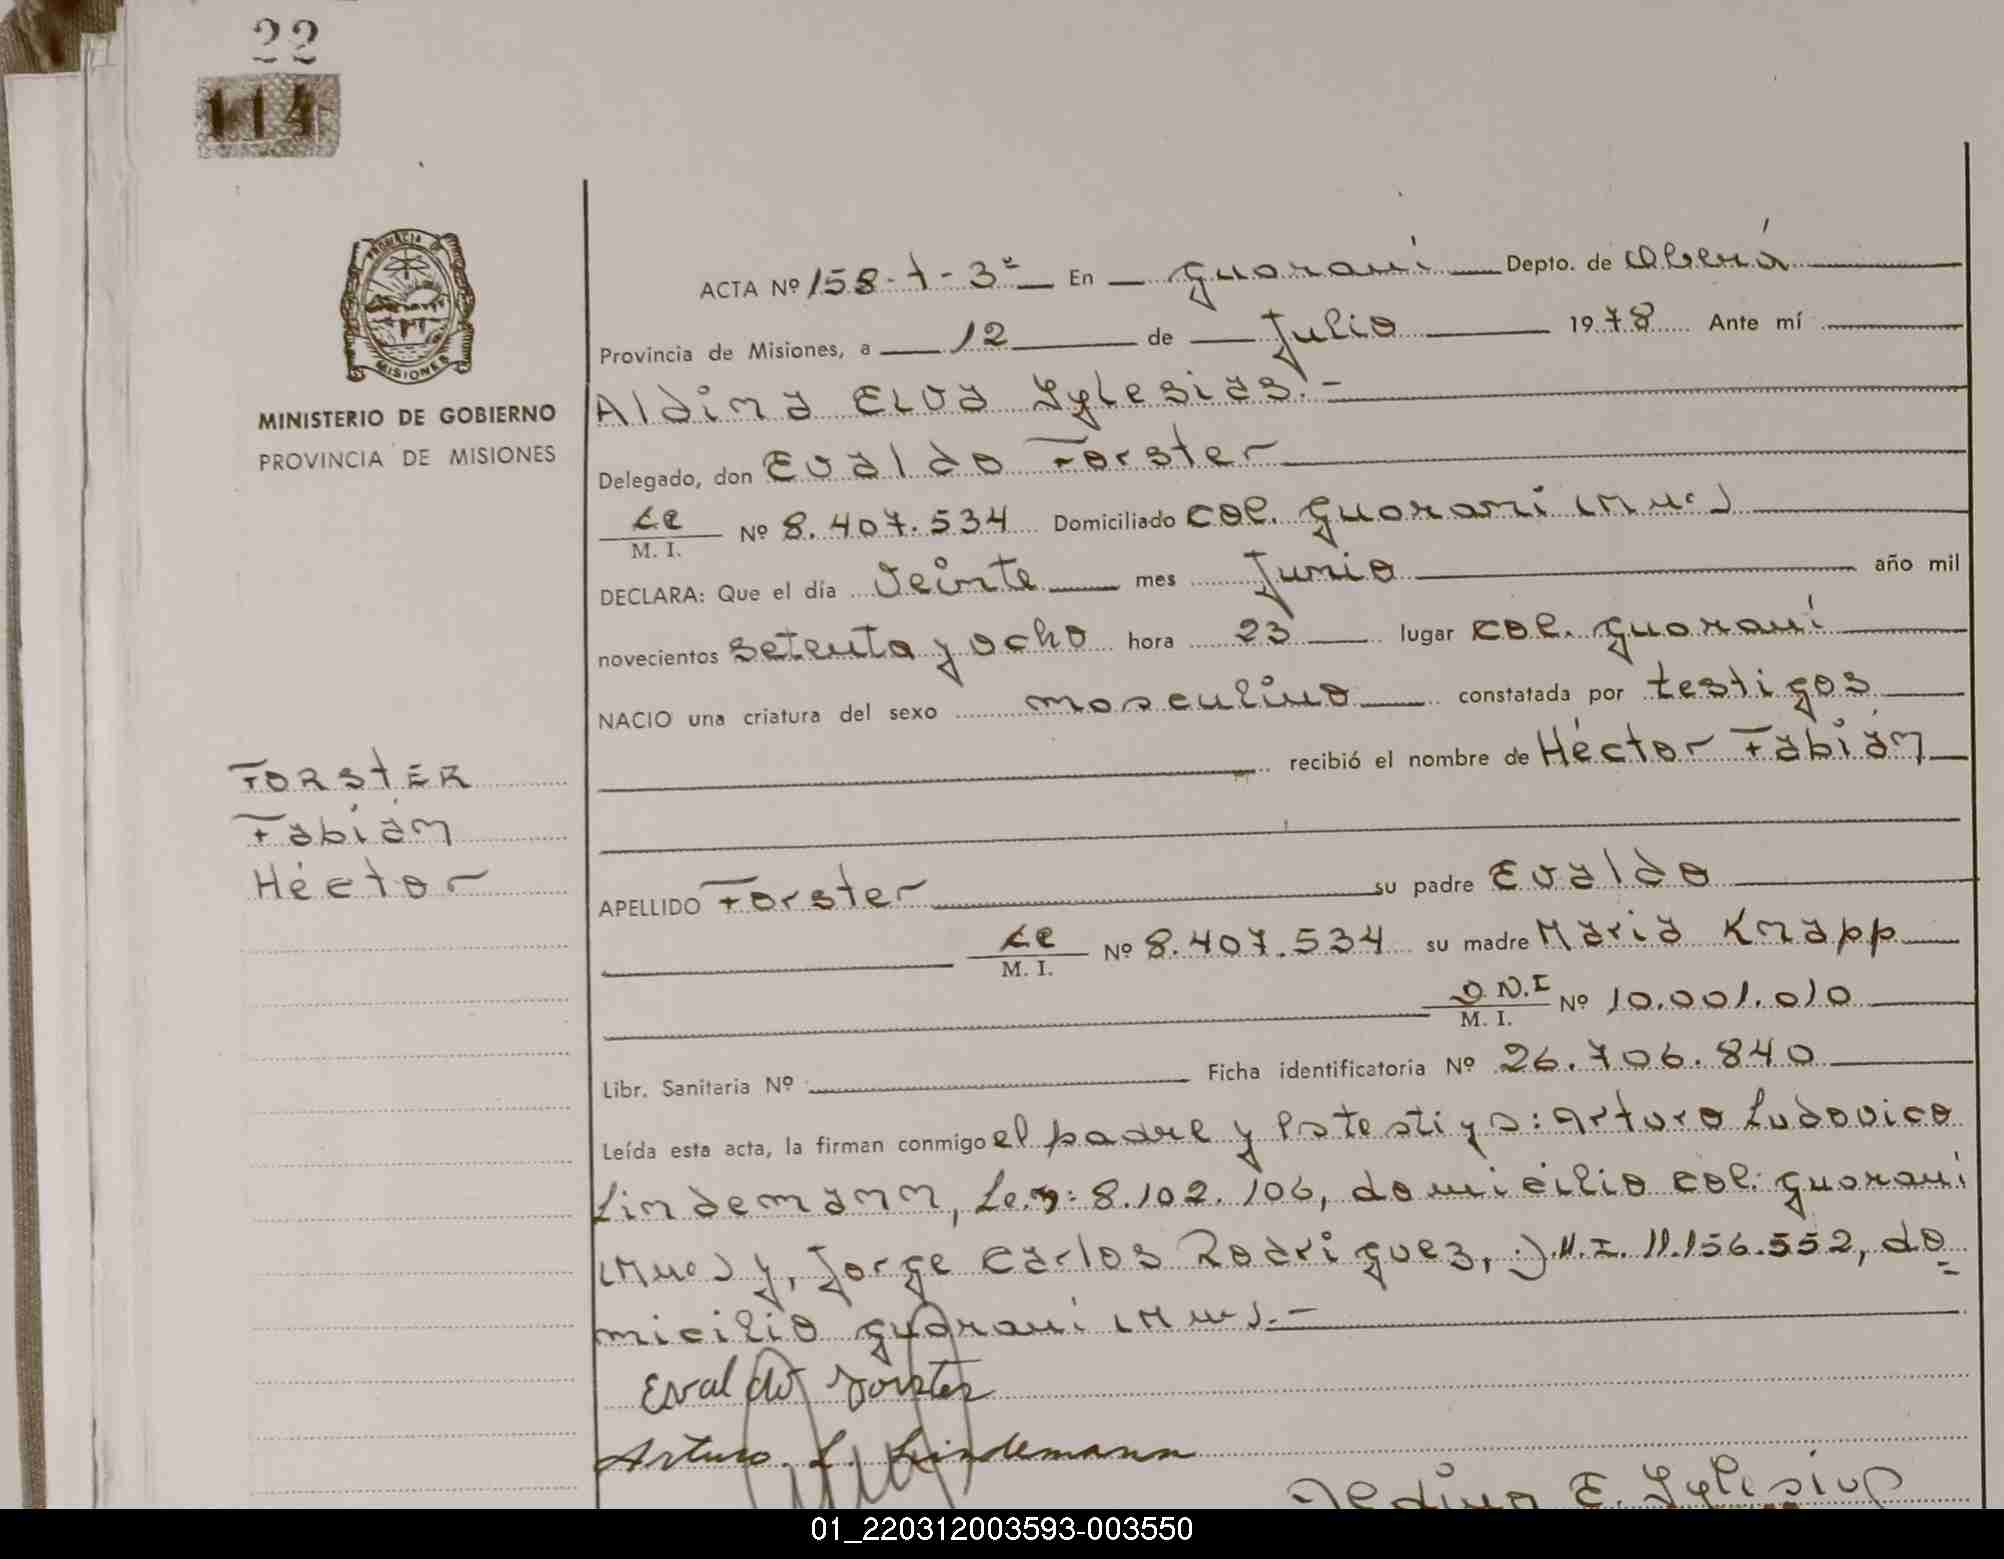 22
114
PROVINCIA DE
MISIONES
MINISTERIO DE GOBIERNO
PROVINCIA DE MISIONES
FORSTER
Fabián
Héctor
ACTA Nº 158-t-3º En guarani Depto. de Oberá
Provincia de Misiones, a 12 de Julio 1978 Ante mí
Aldina Elva Yglesias.-
Delegado, don Evaldo Forster
Le
M. I. Nº 8.407.534 Domiciliado col. guarani (Mnes)
DECLARA: Que el día veinte mes Junio año mil
novecientos setenta y ocho hora 23 lugar col. guarani
NACIO una criatura del sexo masculino constatada por testigos
recibió el nombre de Héctor Fabián
APELLIDO Forster su padre Evaldo
Le
M. I. Nº 8.407.534 su madre Maria Knapp
D.N.I
M. I. Nº 10.001.010
Libr. Sanitaria Nº Ficha identificatoria Nº 26.706.840
Leída esta acta, la firman conmigo el padre y los testigos: Arturo Ludovico
Lindemann, Le.nº: 8.102.106, domicilio col. guarani
(Mnes) y, Jorge Carlos Rodriguez, D.N.I. 11.156.552, do
micilio guarani (Mnes).-
Evaldo Forster
Arturo L. Lindemann
Aldina E. Yglesias
01_220312003593-003550